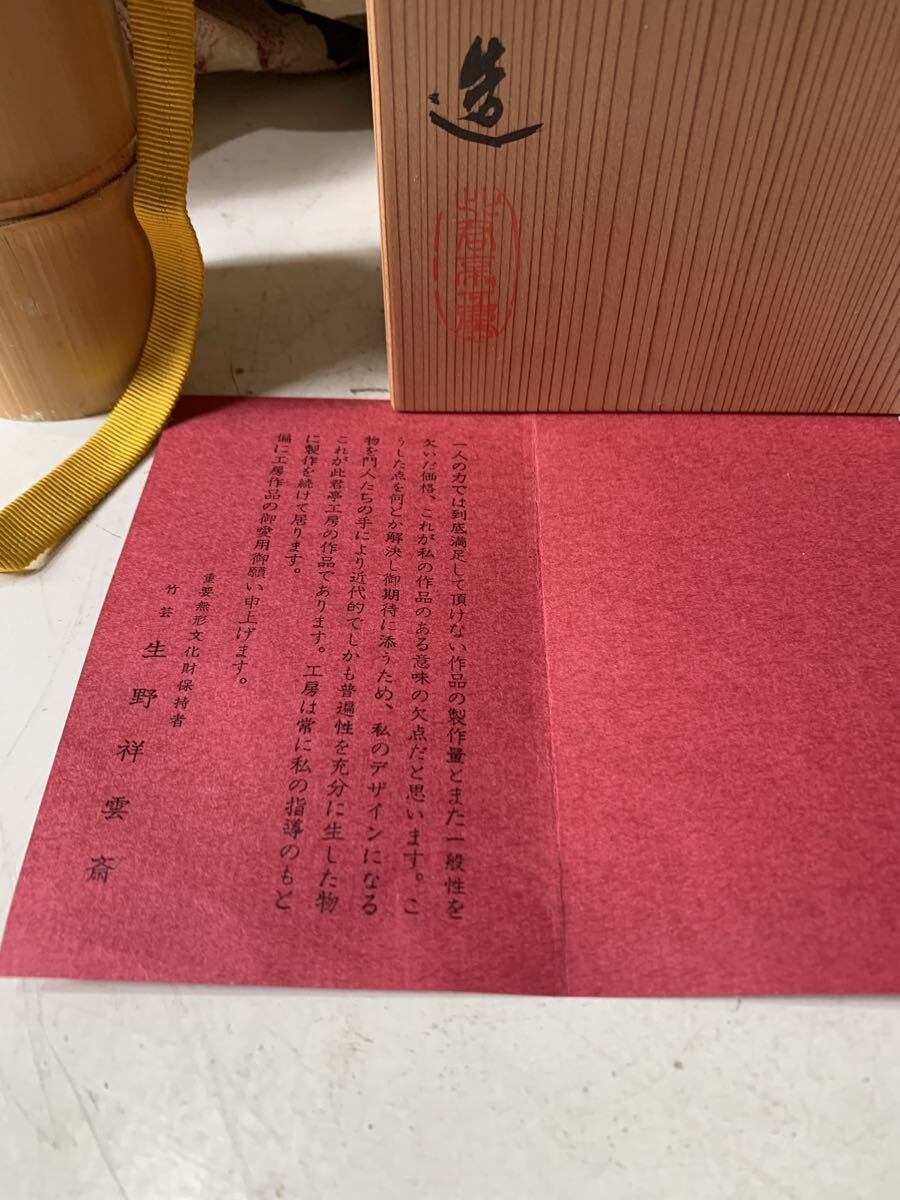 造
此君亭工房
一人の力では到底満足して頂けない作品の製作量とまた一般性を
欠いだ価格、これが私の作品のある意味の欠点だと思います。こ
うした点を何とか解決し御期待に添うため、私のデザインになる
物を門人たちの手により近代的でしかも普遍性を充分に生した物
これが此君亭工房の作品であります。工房は常に私の指導のもと
に製作を続けて居ります。
偏に工房作品の御愛用御願い申上げます。
重要無形文化財保持者
竹芸 生野祥雲斎